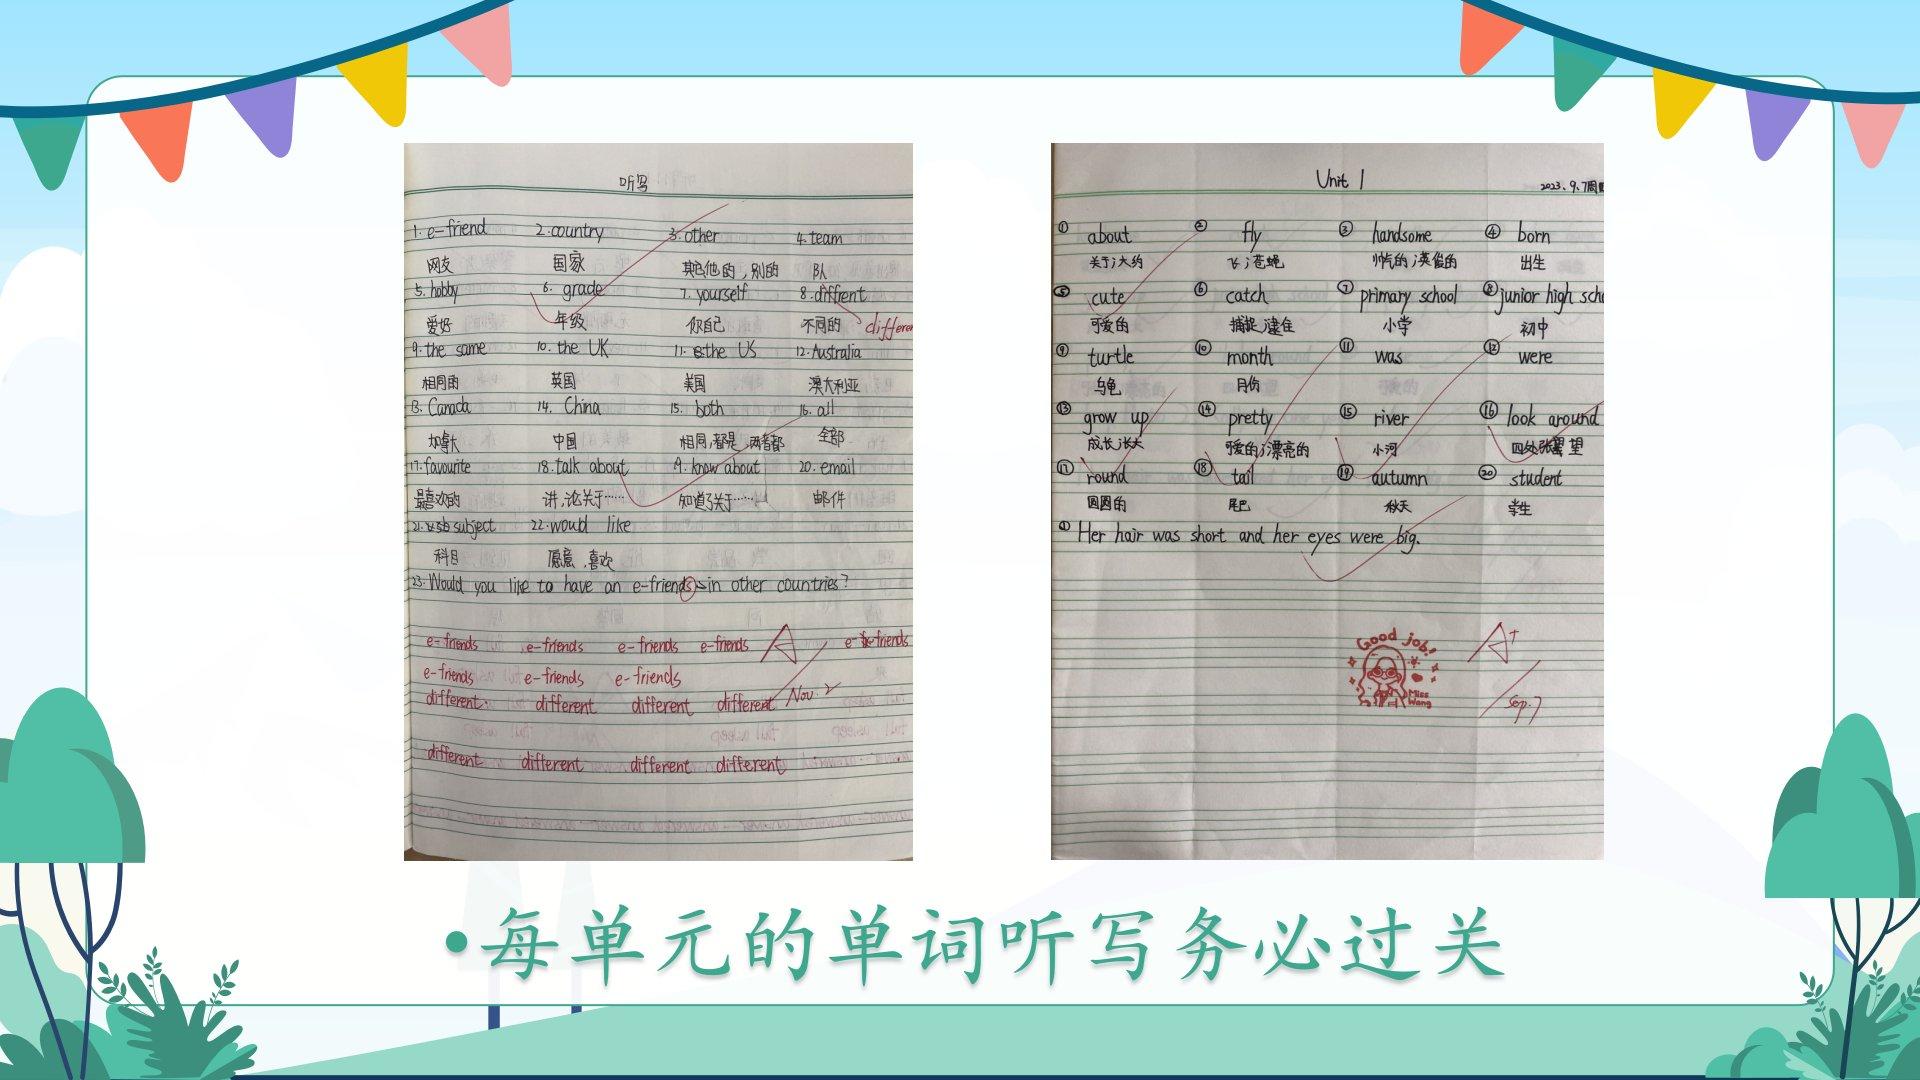 听写
1. e-friend 2. country 3. other 4. team
网友 国家 其他的，别的 队
5. hobby 6. grade 7. yourself 8. diffrent
爱好 年级 你自己 不同的 differen
9. the same 10. the UK 11. the US 12. Australia
相同的 英国 美国 澳大利亚
13. Canada 14. China 15. both 16. all
加拿大 中国 相同，都是，两者都 全部
17. favourite 18. talk about 19. know about 20. email
最喜欢的 讲，论关于…… 知道了关于…… 邮件
21. subject 22. woud like
科目 愿意，喜欢
23. Would you like to have an e-friends in other countries?
e-friends e-friends e-friends e-friends A e-friends
e-friends e-friends e-friends
different different different different Nov. 2
different different different different
Unit 1
2023.9.7周
① about ② fly ③ handsome ④ born
关于；大约 飞；苍蝇 帅气的；英俊的 出生
⑤ cute ⑥ catch ⑦ primary school ⑧ junior high scho
可爱的 捕捉；逮住 小学 初中
⑨ turtle ⑩ month ⑪ was ⑫ were
乌龟 月份
⑬ grow up ⑭ pretty ⑮ river ⑯ look around
成长；长大 可爱的；漂亮的 小河 四处张望
⑰ round ⑱ tail ⑲ autumn ⑳ student
圆圆的 尾巴 秋天 学生
Her hair was short and her eyes were big.
Good job!
A+
Miss Wang
Sep. 7
•每单元的单词听写务必过关